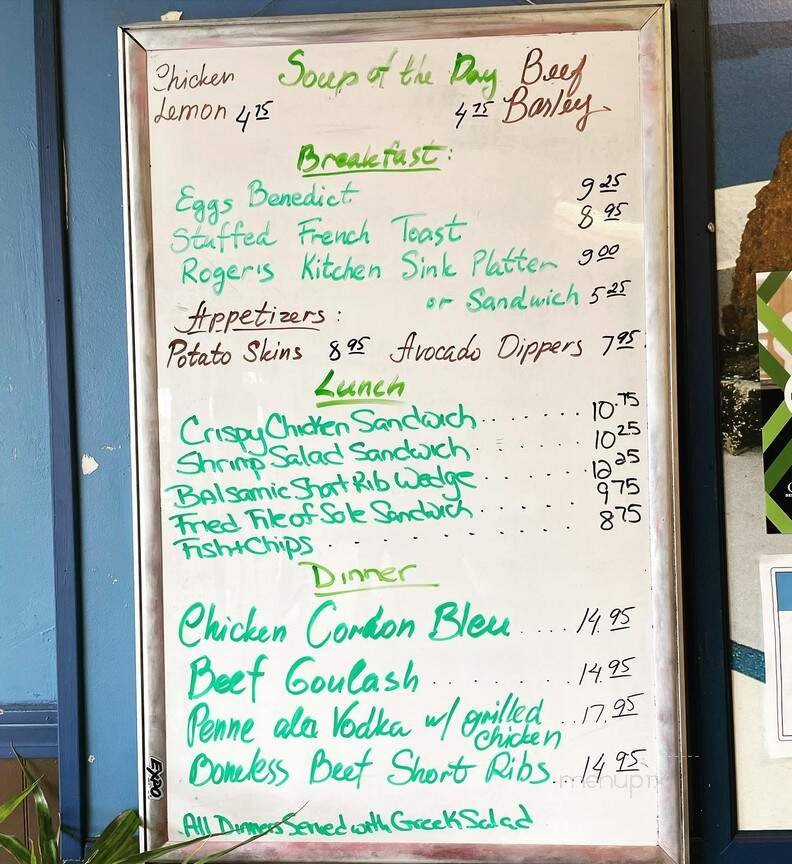 Chicken Soup of the Day Beef
Lemon 4 75 4 75 Barley
Breakfast:
Eggs Benedict 9 25
Stuffed French Toast 8 95
Roger's Kitchen Sink Platter 9 00
or Sandwich 5 25
Appetizers:
Potato Skins 8 95 Avocado Dippers 7 95
Lunch
Crispy Chicken Sandwich....... 10.75
Shrimp Salad Sandwich....... 10 25
Balsamic Short Rib Wedge...... 12 25
Fried File of Sole Sandwich...... 9 75
Fish+Chips......... 8 75
Dinner
Chicken Cordon Bleu.... 14.95
Beef Goulash......... 14.95
Penne ala Vodka w/ grilled ..17.95
chicken
Boneless Beef Short Ribs.. 14 95
All Dinners Served with Greek Salad
EXPO
menupix